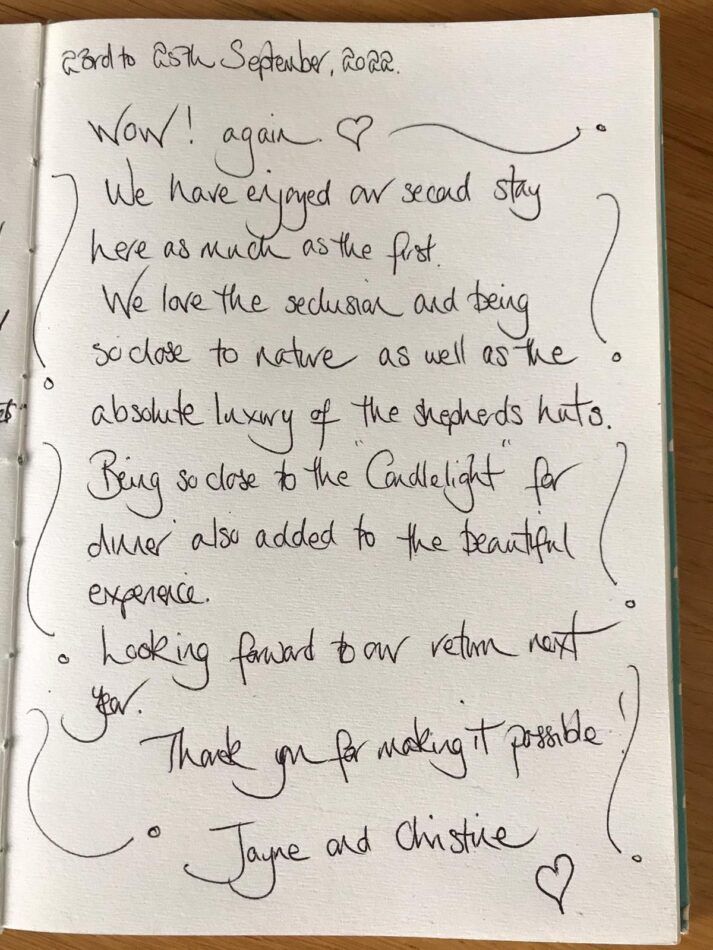 23rd to 25th September, 2022.
WOW! again. ♡
We have enjoyed our second stay
here as much as the first.
We love the seclusion and being
so close to nature as well as the
absolute luxury of the shepherds huts.
Being so close to the "Candlelight" for
dinner also added to the beautiful
experience.
Looking forward to our return next
year.
Thank you for making it possible!
Jayne and Christine
♡